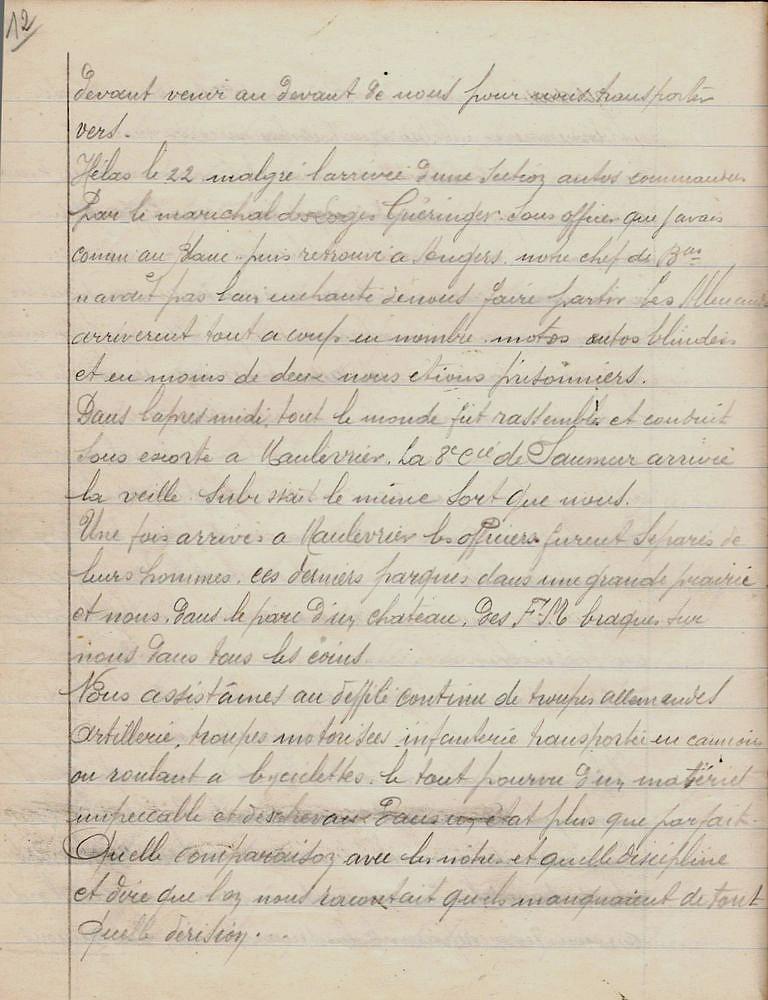 12
devant venir au devant de nous pour nous transporter
vers.
Hélas le 22 malgré l'arrivée d'une section autos commandée
par le marechal des Loges Guéringer. Sous officier que j'avais
connu au puis retrouvé a Angers, notre chef de B^on
n'avait pas l'air enchanté de nous faire partir. Les Allemands
arriverent tout a coup en nombre. motos autos blindées
et en moins de deux nous etions prisonniers.
Dans l'apres midi, tout le monde fût rassemblé et conduit
sous escorte a Maulévrier. La 8e Cie de Saumur arrivée
la veille subissait le même sort que nous.
Une fois arrivés a Maulevrier les officiers furent séparés de
leurs hommes, ces derniers parqués dans une grande prairie
et nous, dans le parc d'un chateau. Des F.M braqués sur
nous dans tous les coins.
Nous assistâmes au défilé continu de troupes allemandes
Artillerie, troupes motorisées infanterie transportée en camions
ou roulant a bycielettes. le tout pourvu d'un matériel
impeccable et des chevaux dans un état plus que parfait.
Quelle comparaison avec les nôtres et quelle discipline
et dire que l'on nous racontait qu'ils manquaient de tout
quelle dérision.